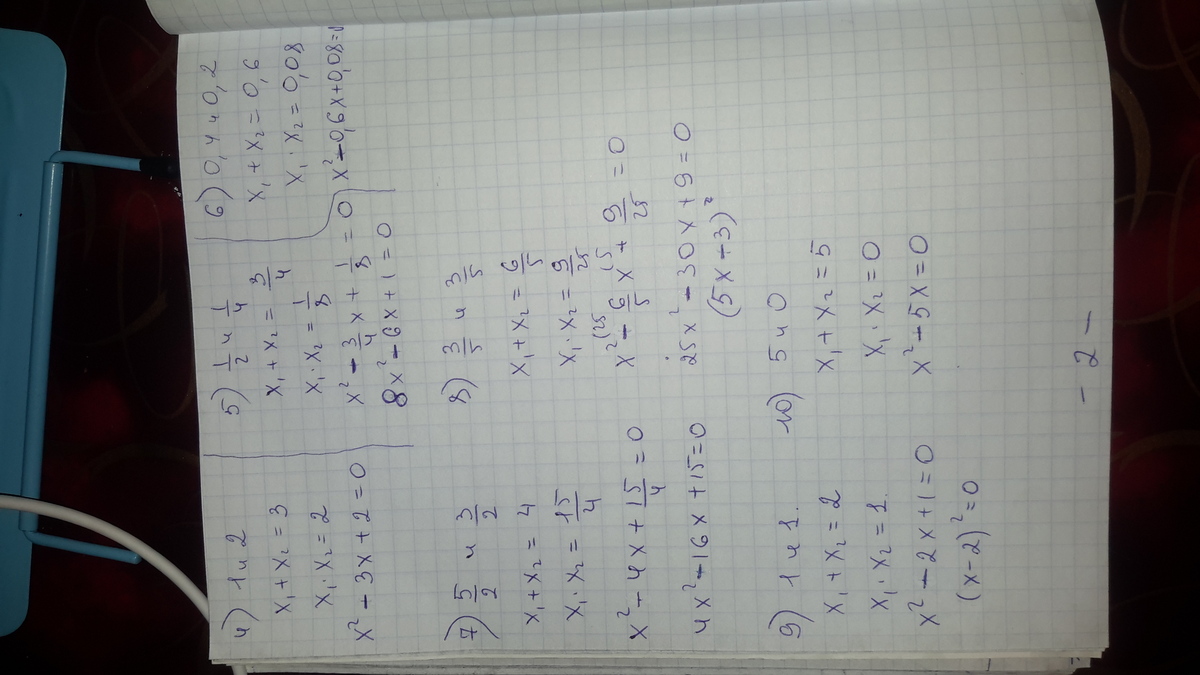 4) 1 и 2
x₁ + x₂ = 3
x₁ · x₂ = 2
x² - 3x + 2 = 0
5) 1/2 и 1/4
x₁ + x₂ = 3/4
x₁ · x₂ = 1/8
x² - 3/4 x + 1/8 = 0
8x² - 6x + 1 = 0
6) 0,4 и 0,2
x₁ + x₂ = 0,6
x₁ · x₂ = 0,08
x² - 0,6x + 0,08 = 0
7) 5/2 и 3/2
x₁ + x₂ = 4
x₁ · x₂ = 15/4
x² - 4x + 15/4 = 0
4x² - 16x + 15 = 0
8) 3/5 и 3/5
x₁ + x₂ = 6/5
x₁ · x₂ = 9/25
x²⁽²⁵ - 6/5 x⁽⁵ + 9/25 = 0
25x² - 30x + 9 = 0
(5x - 3)²
9) 1 и 1.
x₁ + x₂ = 2
x₁ · x₂ = 1.
x² - 2x + 1 = 0
(x - 2)² = 0
10) 5 и 0
x₁ + x₂ = 5
x₁ · x₂ = 0
x² - 5x = 0
- 2 -